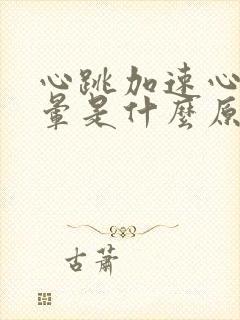 心跳加速心
暈是什麼原
古蕭